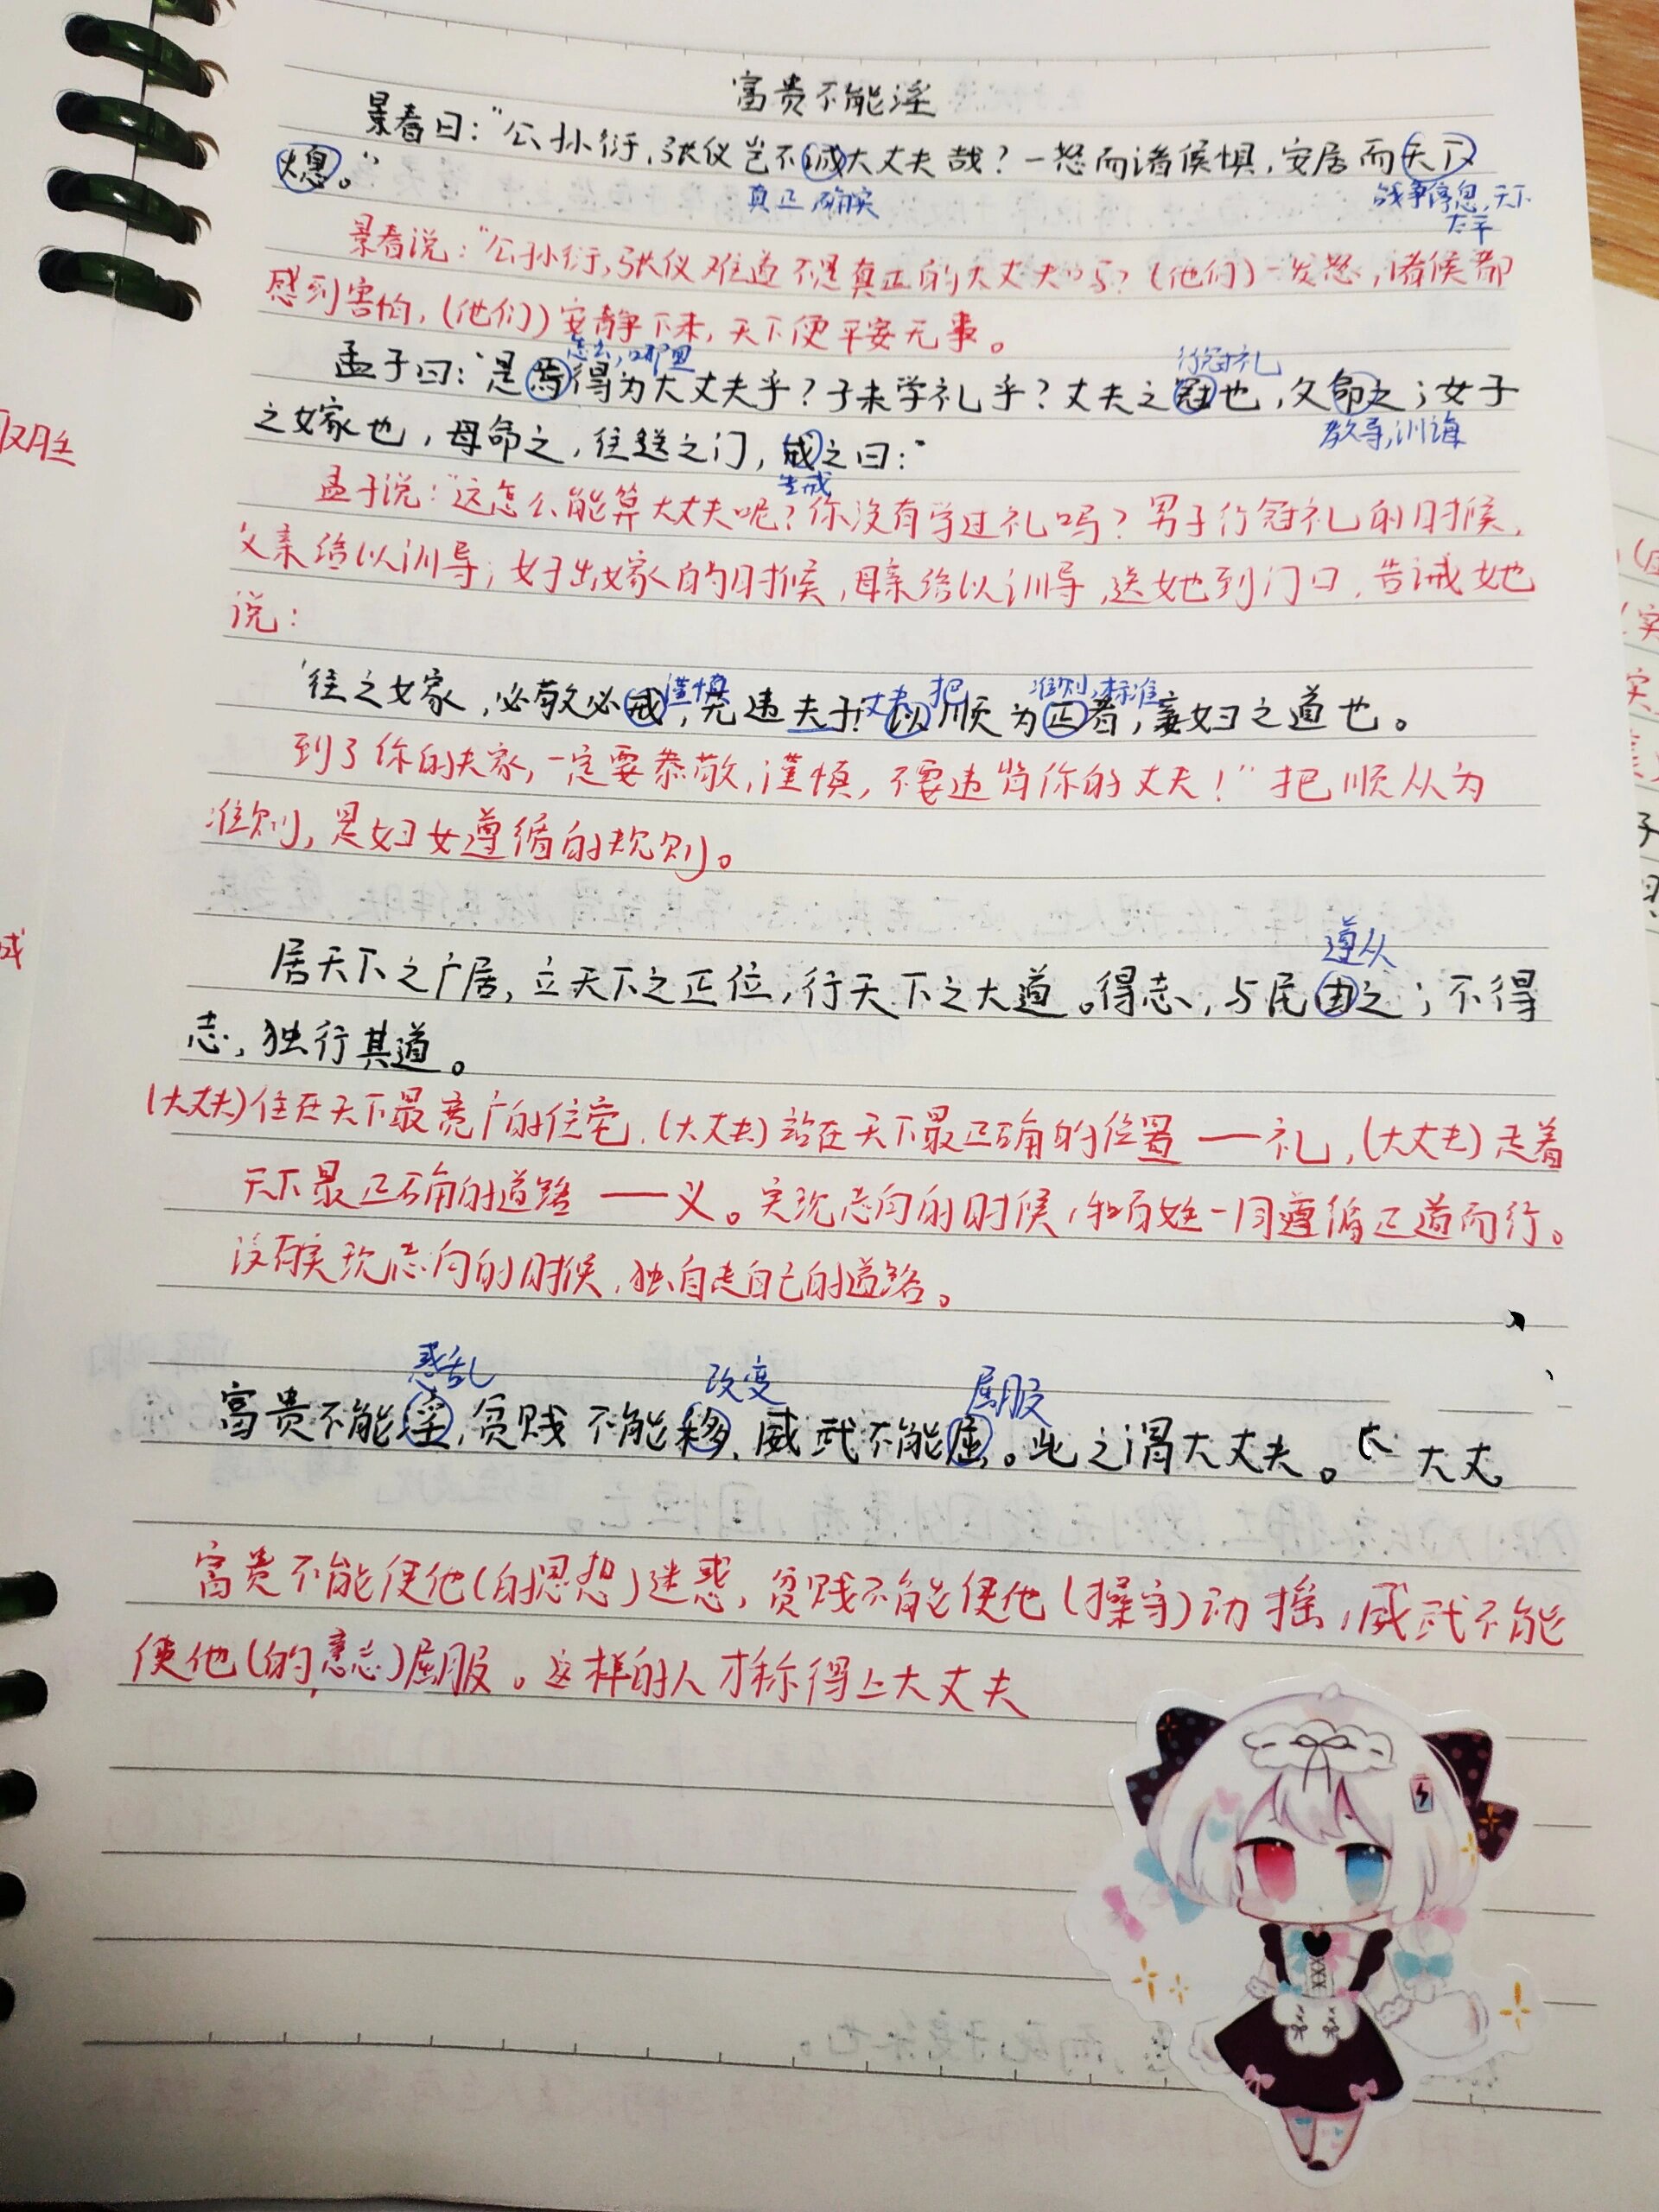 富贵不能淫
景春曰："公孙衍,张仪岂不诚大丈夫哉？一怒而诸侯惧,安居而天下
熄。"
真正 确实
战争停息,天下
太平
景春说："公孙衍,张仪难道不是真正的大丈夫吗？(他们)一发怒,诸侯都
感到害怕,(他们)安静下来,天下便平安无事。
怎么,哪里
行冠礼
孟子曰："是焉得为大丈夫乎？子未学礼乎？丈夫之冠也,父命之；女子
教导,训诲
之嫁也,母命之,往送之门,戒之曰："
告戒
孟子说："这怎么能算大丈夫呢？你没有学过礼吗？男子行冠礼的时候,
父亲给以训导；女子出嫁的时候,母亲给以训导,送她到门口,告诫她
说：
谨慎
丈夫
把
准则,标准
'往之女家,必敬必戒,无违夫子!以顺为正者,妾妇之道也。
到了你的夫家,一定要恭敬,谨慎,不要违背你的丈夫！"把顺从为
准则,是妇女遵循的规则。
遵从
居天下之广居,立天下之正位,行天下之大道。得志,与民由之；不得
志,独行其道。
(大丈夫)住在天下最宽广的住宅,(大丈夫)站在天下最正确的位置——礼,(大丈夫)走着
天下最正确的道路——义。实现志向的时候,和百姓一同遵循正道而行。
没有实现志向的时候,独自走自己的道路。
惑乱
改变
屈服
富贵不能淫,贫贱不能移,威武不能屈。此之谓大丈夫。大丈
富贵不能使他(的思想)迷惑,贫贱不能使他(操守)动摇,威武不能
使他(的意志)屈服。这样的人才称得上大丈夫